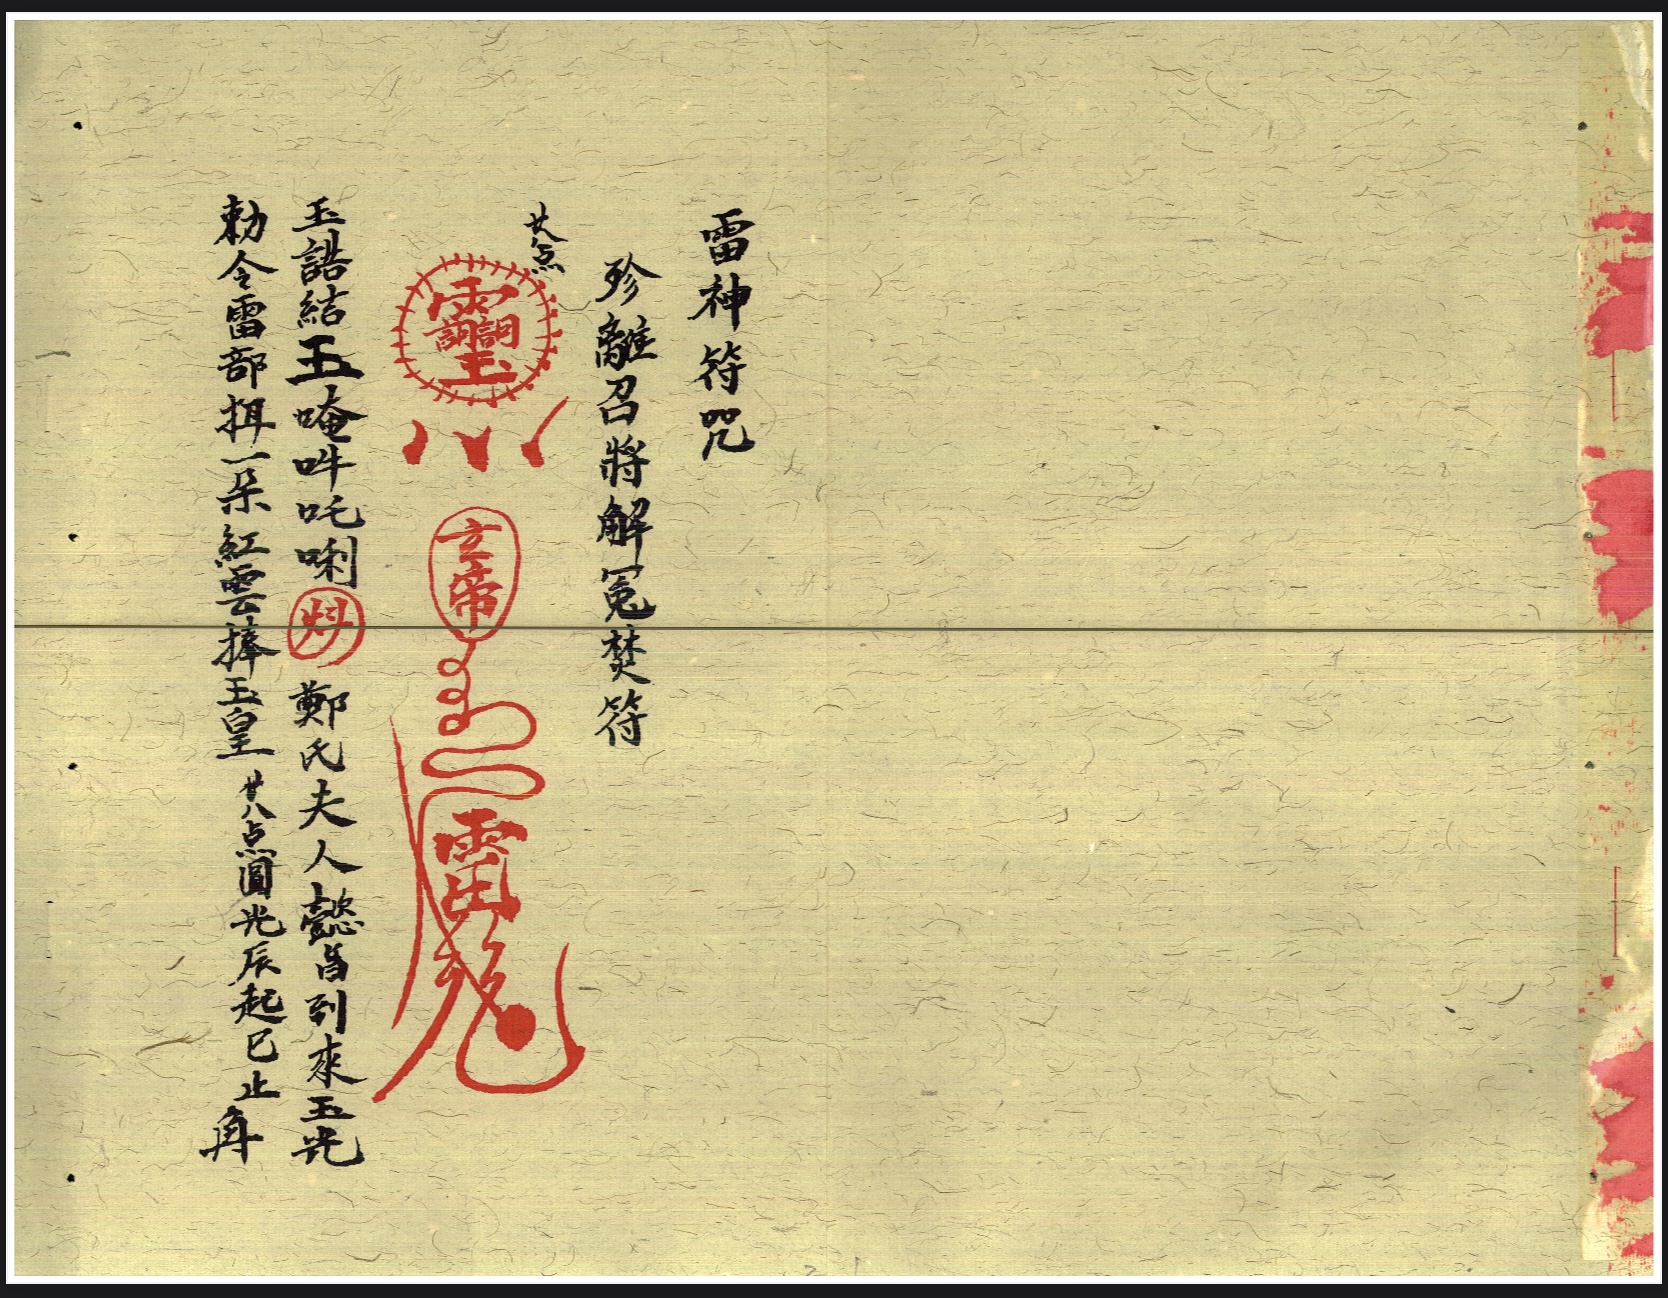 雷神符咒
珍離召將解冤焚符
廿八点
玄帝
玉誥結玉唵吽吒唎
鄭氏夫人懿旨到來玉光
勅令雷部㧅一朵紅雲捧玉皇
廿八点圓光辰起巳止